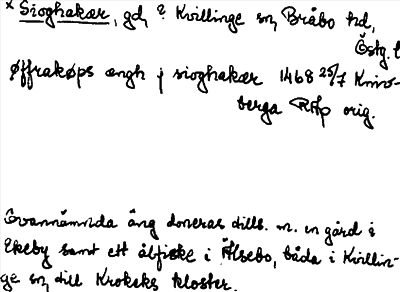 x Sioghakær, gd, ? Kvillinge sn, Bråbo hd,
Östg. l
Øffrakøps ængh j sioghakær 1468 25/7 Knivs-
berga RAp orig.
Ovannämnda äng doneras tills. m. en gård i
Ekeby samt ett ålfiske i Älsebo, båda i Kvillin-
ge sn, till Krokeks kloster.